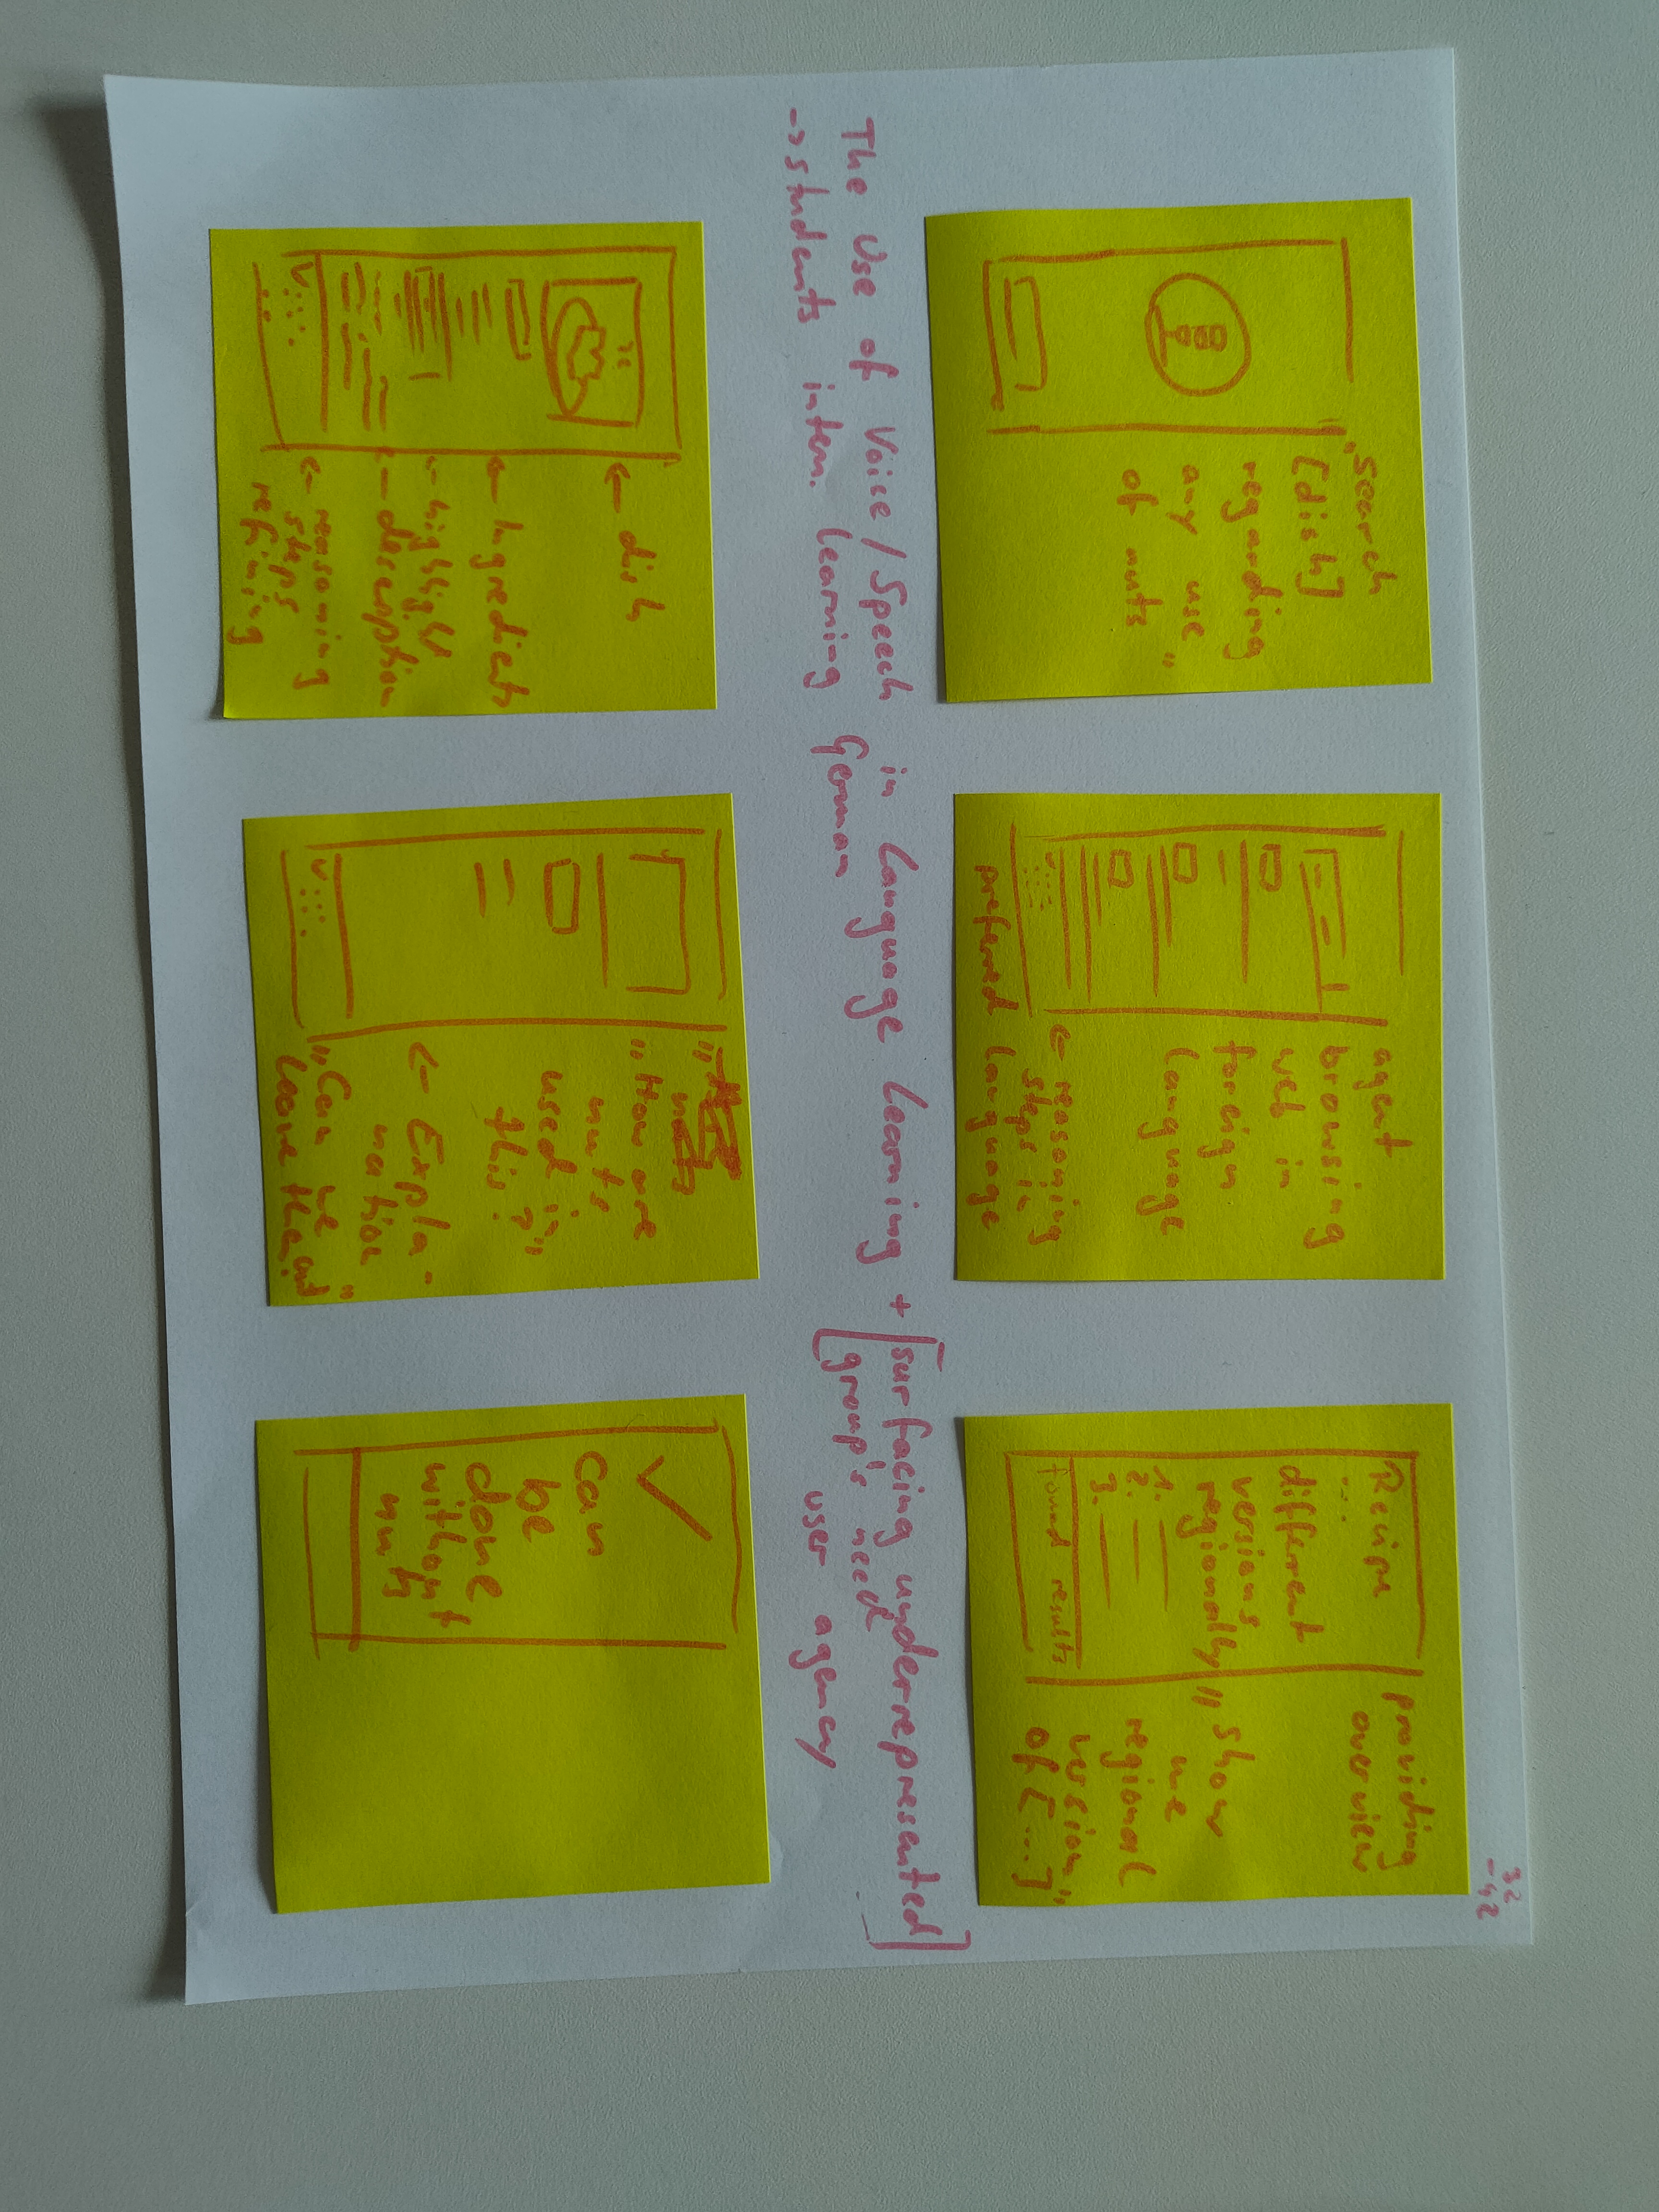 32
-42
"Search
[dish]
regarding
any use
of nuts"
agent
browsing
web in
foreign
language
← reasoning
steps in
preferred language
Recipe
...
different
versions
regionally
1.
2.
3.
found results
providing
overview
"show
me
regional
version
of [...]"
The use of Voice/Speech in Language Learning + [surfacing underrepresented]
->students intern. learning German [group's need
user agency
← dish
← Ingredients
← highlight
← description
← reasoning
steps
refining
"How are
nuts
used in
this?"
← Expla-
nation
"Can we
leave them out"
can
be
done
without
nuts